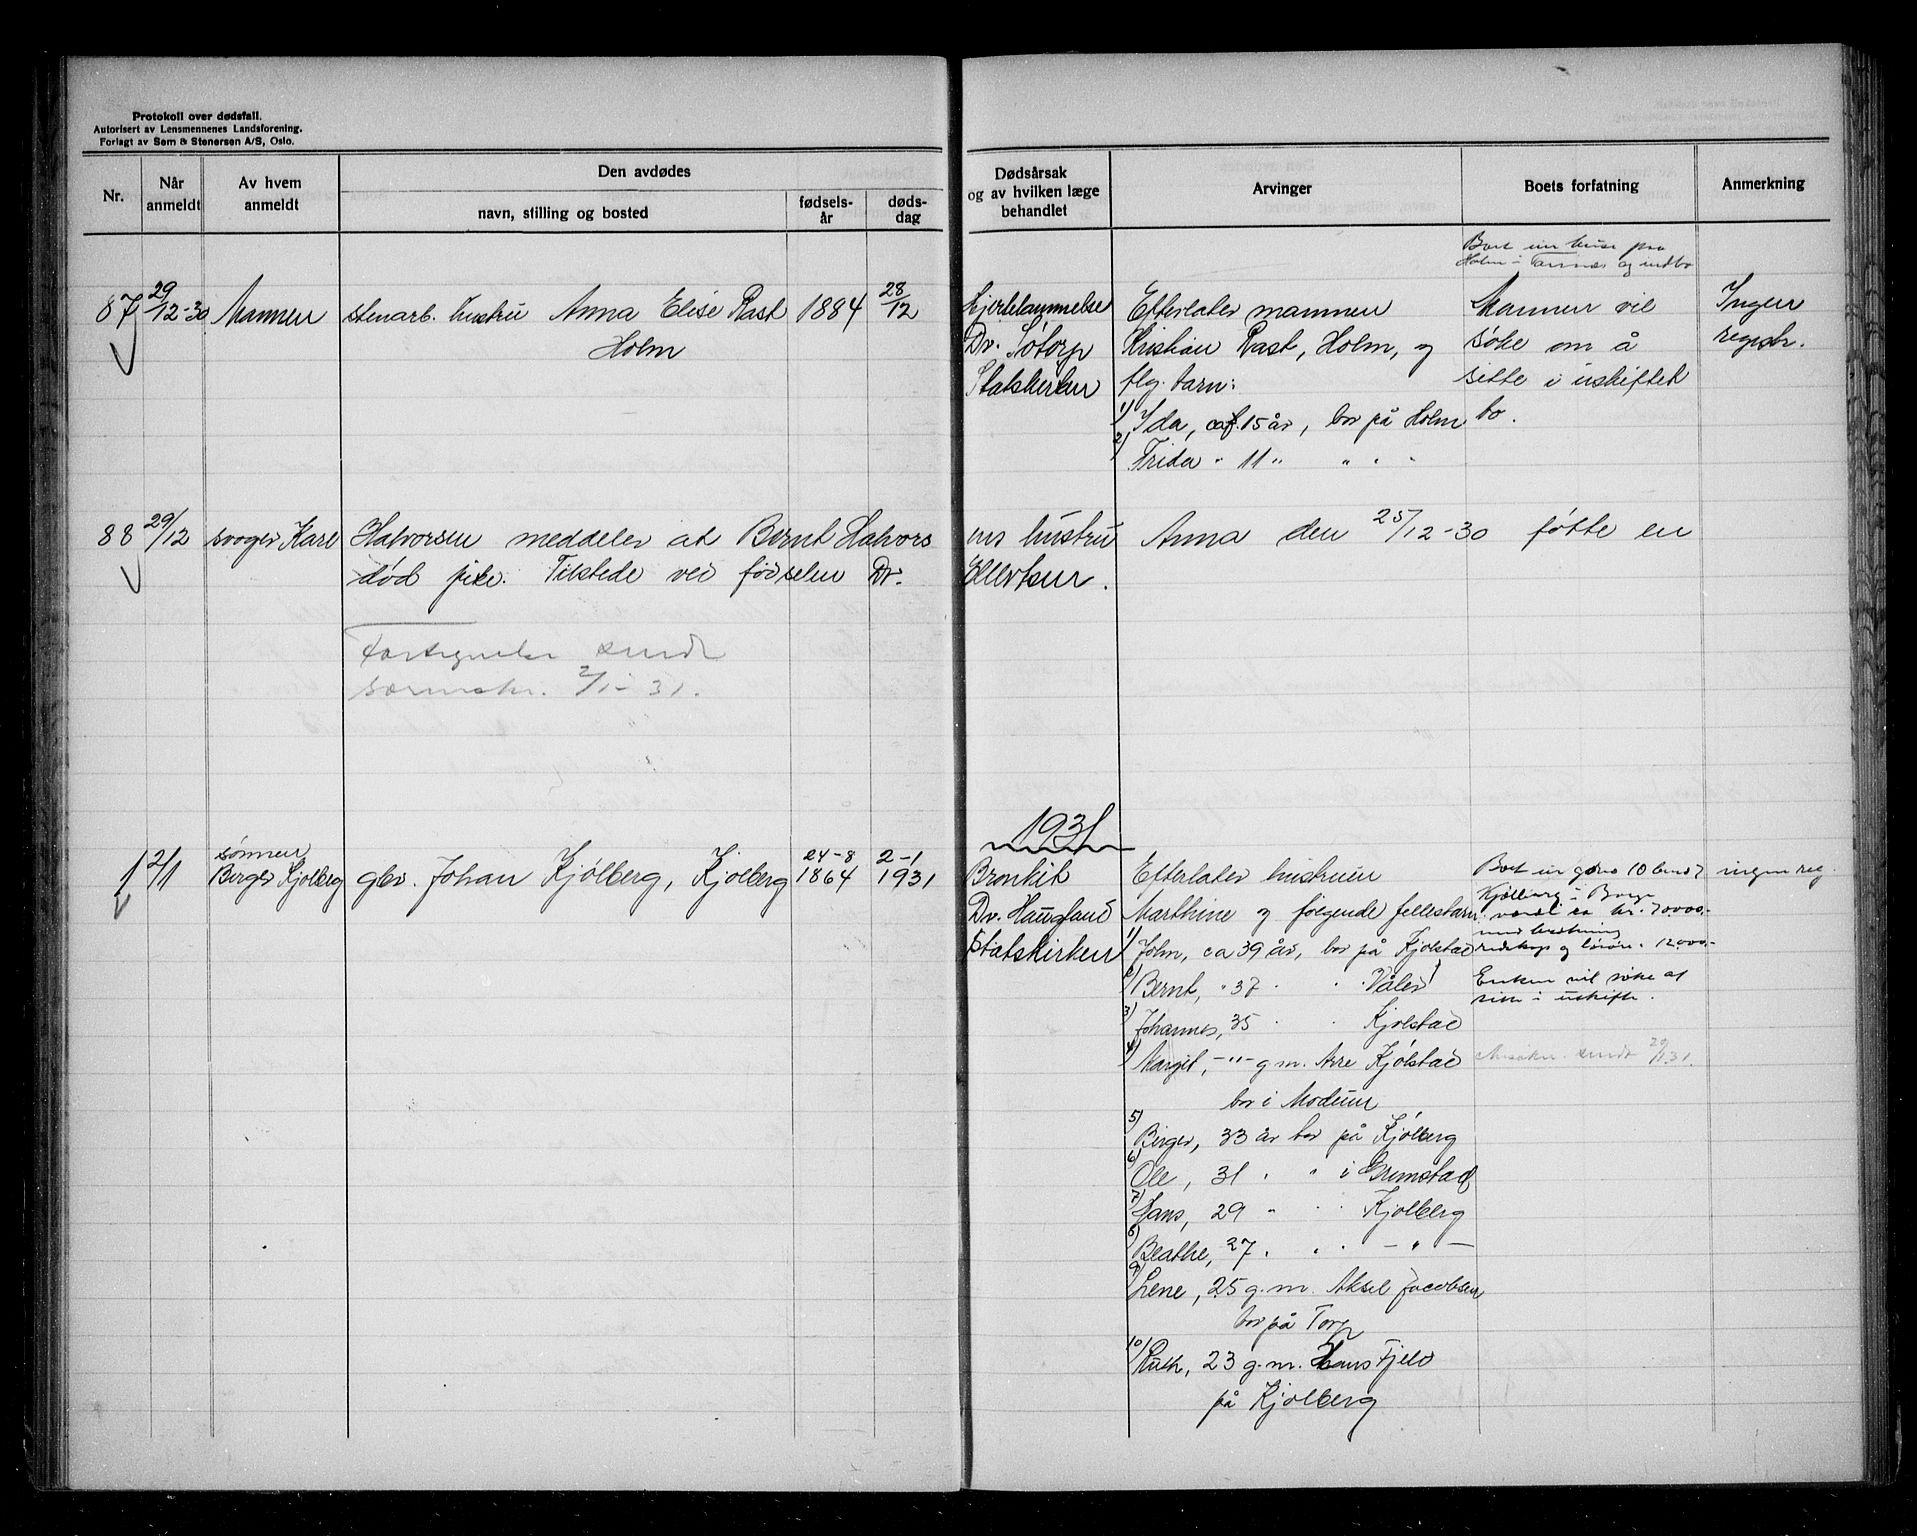 Protokoll over dødsfall.
Autorisert av Lensmennenes Landsforening.
Forlagt av Sem & Stenersen A/S, Oslo.
Nr.
Når
anmeldt
Av hvem
anmeldt
Den avdødes
navn, stilling og bosted
fødsels-
år
døds-
dag
Dødsårsak
og av hvilken læge
behandlet
Arvinger
Boets forfatning
Anmerkning
87
29/12-30
Mannen
stenarb. hustru Anna Elise Rast
Holm
1884
28/12
Hjertelammelse
Dr. Søtorp
Statskirken
Efterlater mannen
Kristian Rast, Holm, og
flg. barn:
1) Ida, ca. 15 år, bor på Holm
2) Frida " 11 " " " "
Boet eier huse paa
Holm i og indbo
Mannen vil
søke om å
sitte i uskiftet
bo.
Ingen
registr.
88
29/12
svoger Karl Halvorsen meddeler at Bernt Halvors
ens hustru Anna den 25/12-30 føtte en
død pike. Tilstede ved fødselen Dr.
Ellertsen.
Fortegnelse sendt
sorenskr. 2/1-31.
1931
1
2/1
sønnen
Birger Kjølberg
gbr. Johan Kjølberg, Kjølberg
24-8
1864
2-1
1931
Bronkit
Dr. Haugland
Statskirken
Efterlater hustruen
Marthine og følgende fellesbarn
1) John, ca 39 år, bor på Kjølstad
2) Bernt, " 37 " " Våler
3) Johannes, 35 " " Kjølstad
4) Margit, -"- g.m. Arre Kjølstad
bor i Modum
5) Birger, 33 år bor på Kjølberg
6) Ole, 31 " " i Grimstad
7) Hans, 29 " " Kjølberg
8) Beathe, 27 " " " - " -
9) Lene, 25 g.m. Aksel Jacobsen
bor på Torp
10) Ruth, 23 g.m. Hans Fjeld
på Kjølberg
Boet eier
Kjølberg i Borge
værdi ca kr. 70000.-
med besetning
redskap og løsøre " 12000.-
Enken vil søke at
sitte i uskifte.
Ansøkn. sendt 29/1.31.
ingen reg.